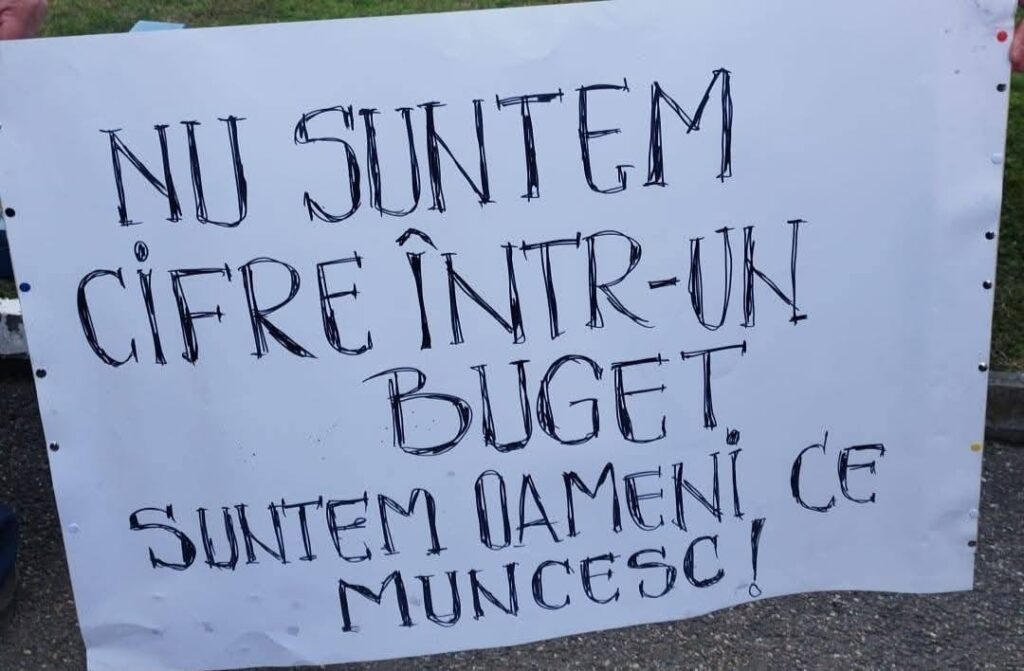 NU SUNTEM
CIFRE ÎNTR-UN
BUGET
SUNTEM OAMENI CE
MUNCESC!